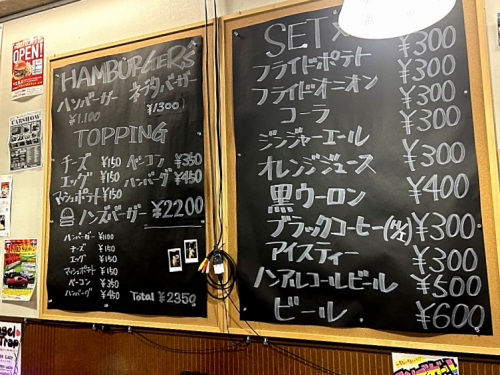 OPEN!
CARSHOW
HAMBURGERS
ハンバーガー
¥1.100
ネブタバーガー
¥1300
TOPPING
チーズ ¥150 ベーコン ¥350
エッグ ¥150 ハンバーグ ¥450
マッシュポテト ¥150
ハンズバーガー ¥2200
ハンバーガー ¥1100
チーズ ¥150
エッグ ¥150
マッシュポテト ¥150
ベーコン ¥350
ハンバーグ ¥450
Total ¥2350
SET
¥300
フライドポテト ¥300
フライドオニオン ¥300
コーラ ¥300
ジンジャーエール ¥300
オレンジジュース ¥400
黒ウーロン ¥300
ブラックコーヒー ¥300
アイスティー ¥300
ノンアルコールビール ¥500
ビール ¥600
Trap